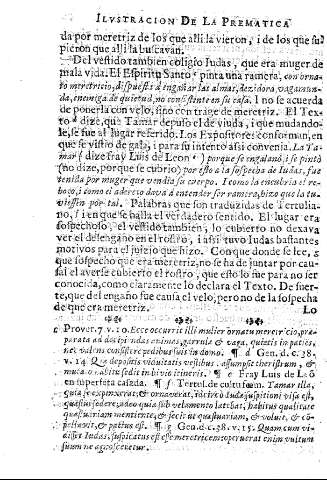 ILVSTRACION DE LA PREMATICA
da por meretriz de los que alli la vieron, i de los que su
pieron que alli la buscavan.
Del vestido tambien coligio Iudas, que era muger de
mala vida. El Espiritu Santo c pinta una ramera, con orna-
to meretricio, dispuesta a engañar las almas, dezidora, vagamun-
da, enemiga de quietud, no consistente en su casa. I no se acuerda
de ponerla con velo, sino con trage de meretriz. El Tex-
to d dize, que Tamar depuso el de viuda, i que mudando-
le, se fue al lugar referido. Los Expositores conforman, en
que se vistio de gala, i para su intento assi convenia. La Ta-
mar (dize fray Luis de Leon e) porque se engalanò, i se pintò
(no dize, porque se cubrio) por esto a la sospecha de Iudas, fue
tenida por muger que vendia su cuerpo. I como la encubria el re-
boço, i como el adereço dava à entender ser ramera, hizo que la tu-
viessen por tal. Palabras que son traduzidas de Tertulia-
no, f i en que se halla el verdadero sentido. El lugar era
sospechoso, el vestido tambien, lo cubierto no dexava
ver el desengaño en el rostro, i assi tuvo Iudas bastantes
motivos para el juizio que hizo. Conque donde se lee, g
que sospechò que era meretriz, no se ha de juntar por cau-
sal el averse cubierto el rostro, que esto lo fue para no ser
conocida, como claramente lo declara el Texto. De suer-
te, que del engaño fue causa el velo, pero no de la sospecha
de que era meretriz.
Lo
c Prover. 7. v. 10. Ecce occurrit illi mulier ornatu meretricio, præ-
parata ad decipiendas animas, garrula & vaga, quietis impatiens,
nec valens consistere pedibus suis in domo. ¶ d Gen. d. c. 38.
v. 14. Quæ depositis viduitatis vestibus, assumpsit theristrum, &
mutato habitu sedit in bivio itineris. ¶ e Fray Luis de Leō
en su perfeta casada. ¶ f Tertul. de cultu fœm. Tamar illa,
quia se expinxerat, & ornaverat, idcirco Iudæ suspitioni visa est,
quæstui sedere; adeo quia sub velamento latebat, habitus qualitate
quæstuariam mentiente, & sciit ut quæstuariam, & voluit, & cō-
pellavit, & pactus est. ¶ g Gen. d. c. 38. v. 15. Quam cum vi-
disset Iudas, suspicatus est esse meretricem: operuerat enim vultum
suum ne agnosceretur.